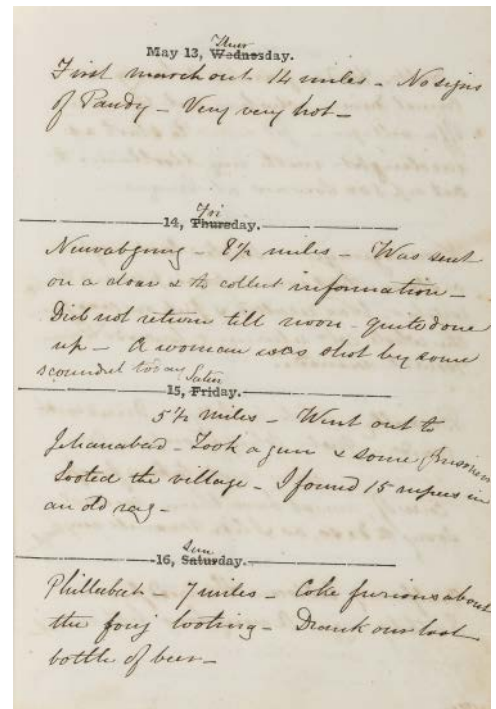 Thur
May 13, Wednesday.
First march out 14 miles - No signs
of Pandy - Very very hot -
Fri
14, Thursday.
Newabgung - 8½ miles - Was sent
on a dour & to collect information -
Did not return till noon - quite done
up - A woman was shot by some
scoundrel today
Satur
15, Friday.
5½ miles - Went out to
Jehanabad - Took a gun & some prisoners
Looted the village - I found 15 rupees in
an old rag -
Sun
16, Saturday.
Phillibeet - 7 miles - Coke furious about
the fouj looting - Drank our last
bottle of beer -